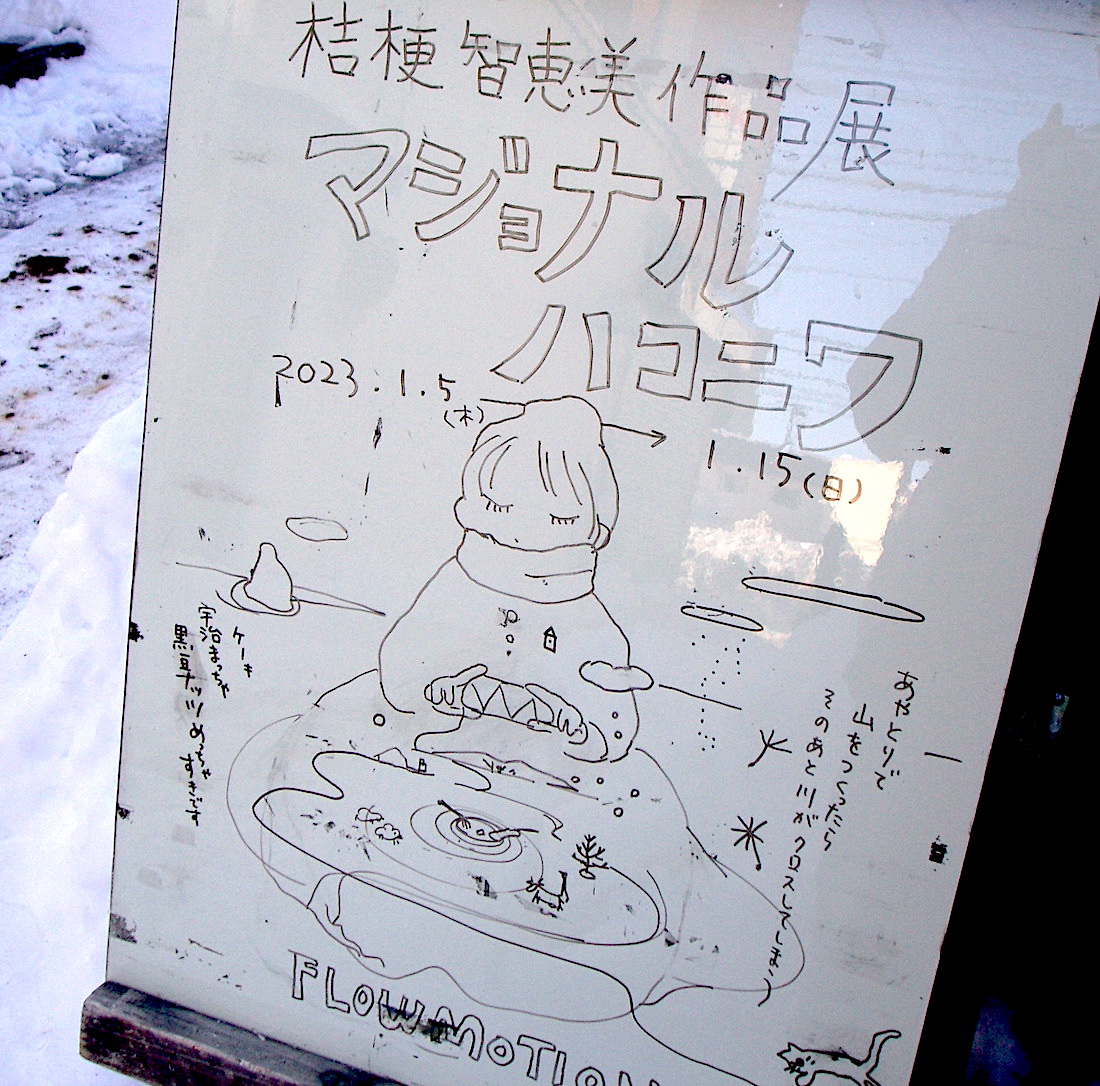 桔梗智恵美作品展
マジョナル
ハコニワ
2023.1.5
(木)
1.15(日)
あやとりで
山をつくったら
そのあと川がクロスしてしまう
ケーキ
宇治まっちゃ
すきです
FLOWMOTION